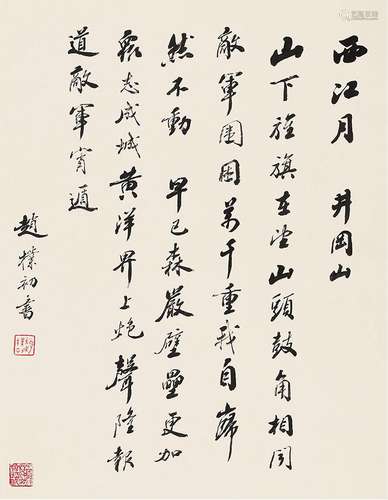 西江月 井岡山
山下旌旗在望山頭鼓角相聞
敵軍圍困萬千重我自巋
然不動 早已森嚴壁壘更加
衆志成城黃洋界上炮聲隆報
道敵軍宵遁
趙樸初書